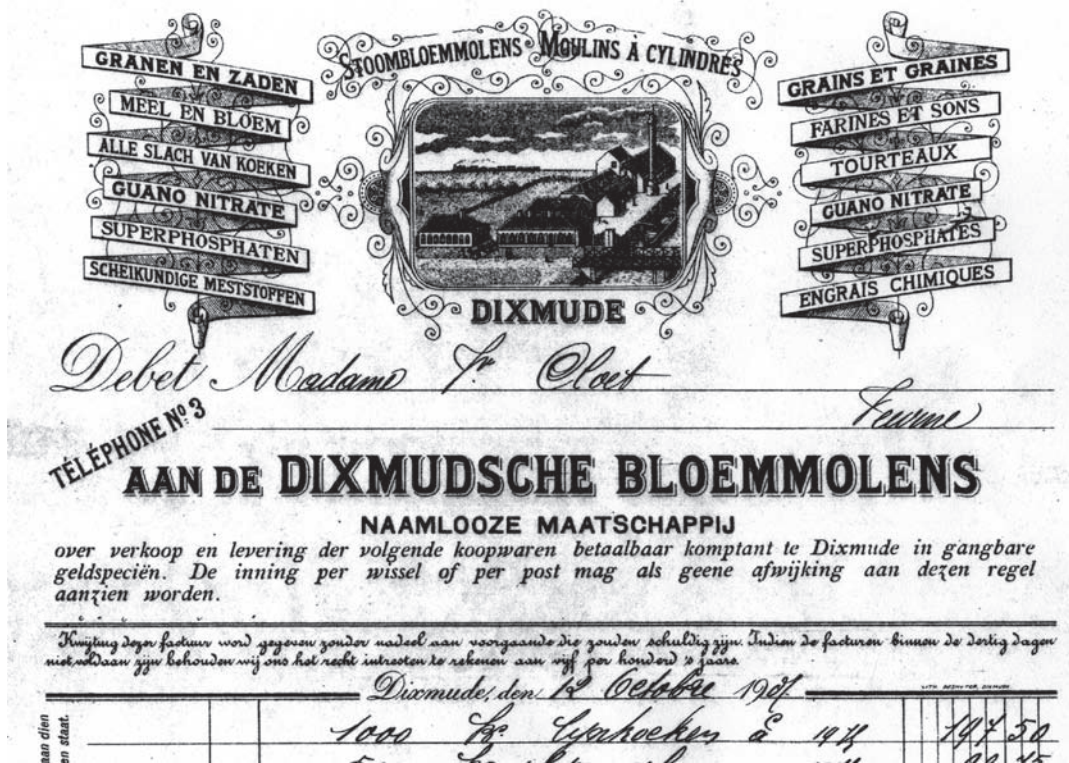 STOOMBLOEMMOLENS MOULINS À CYLINDRES
GRANEN EN ZADEN
MEEL EN BLOEM
ALLE SLACH VAN KOEKEN
GUANO NITRATE
SUPERPHOSPHATEN
SCHEIKUNDIGE MESTSTOFFEN
GRAINS ET GRAINES
FARINES ET SONS
TOURTEAUX
GUANO NITRATE
SUPERPHOSPHATES
ENGRAIS CHIMIQUES
DIXMUDE
Debet Madame Cloet
Veurne
TÉLÉPHONE Nº 3
AAN DE DIXMUDSCHE BLOEMMOLENS
NAAMLOOZE MAATSCHAPPIJ
over verkoop en levering der volgende koopwaren betaalbaar komptant te Dixmude in gangbare
geldspeciën. De inning per wissel of per post mag als geene afwijking aan dezen regel
aanzien worden.
Kwijting dezer factuur word gegeven zonder nadeel aan voorgaande die zouden schuldig zijn. Indien de facturen binnen de dertig dagen
niet voldaan zijn behouden wij ons het recht intresten te rekenen aan vijf per honderd 's jaars.
Dixmude, den 12 Octobre 1907
LITH. DESMYTER, DIXMUDE
aan dien
en staat.
1000 Ko Lynkoeken à 19 ¾ 197 50